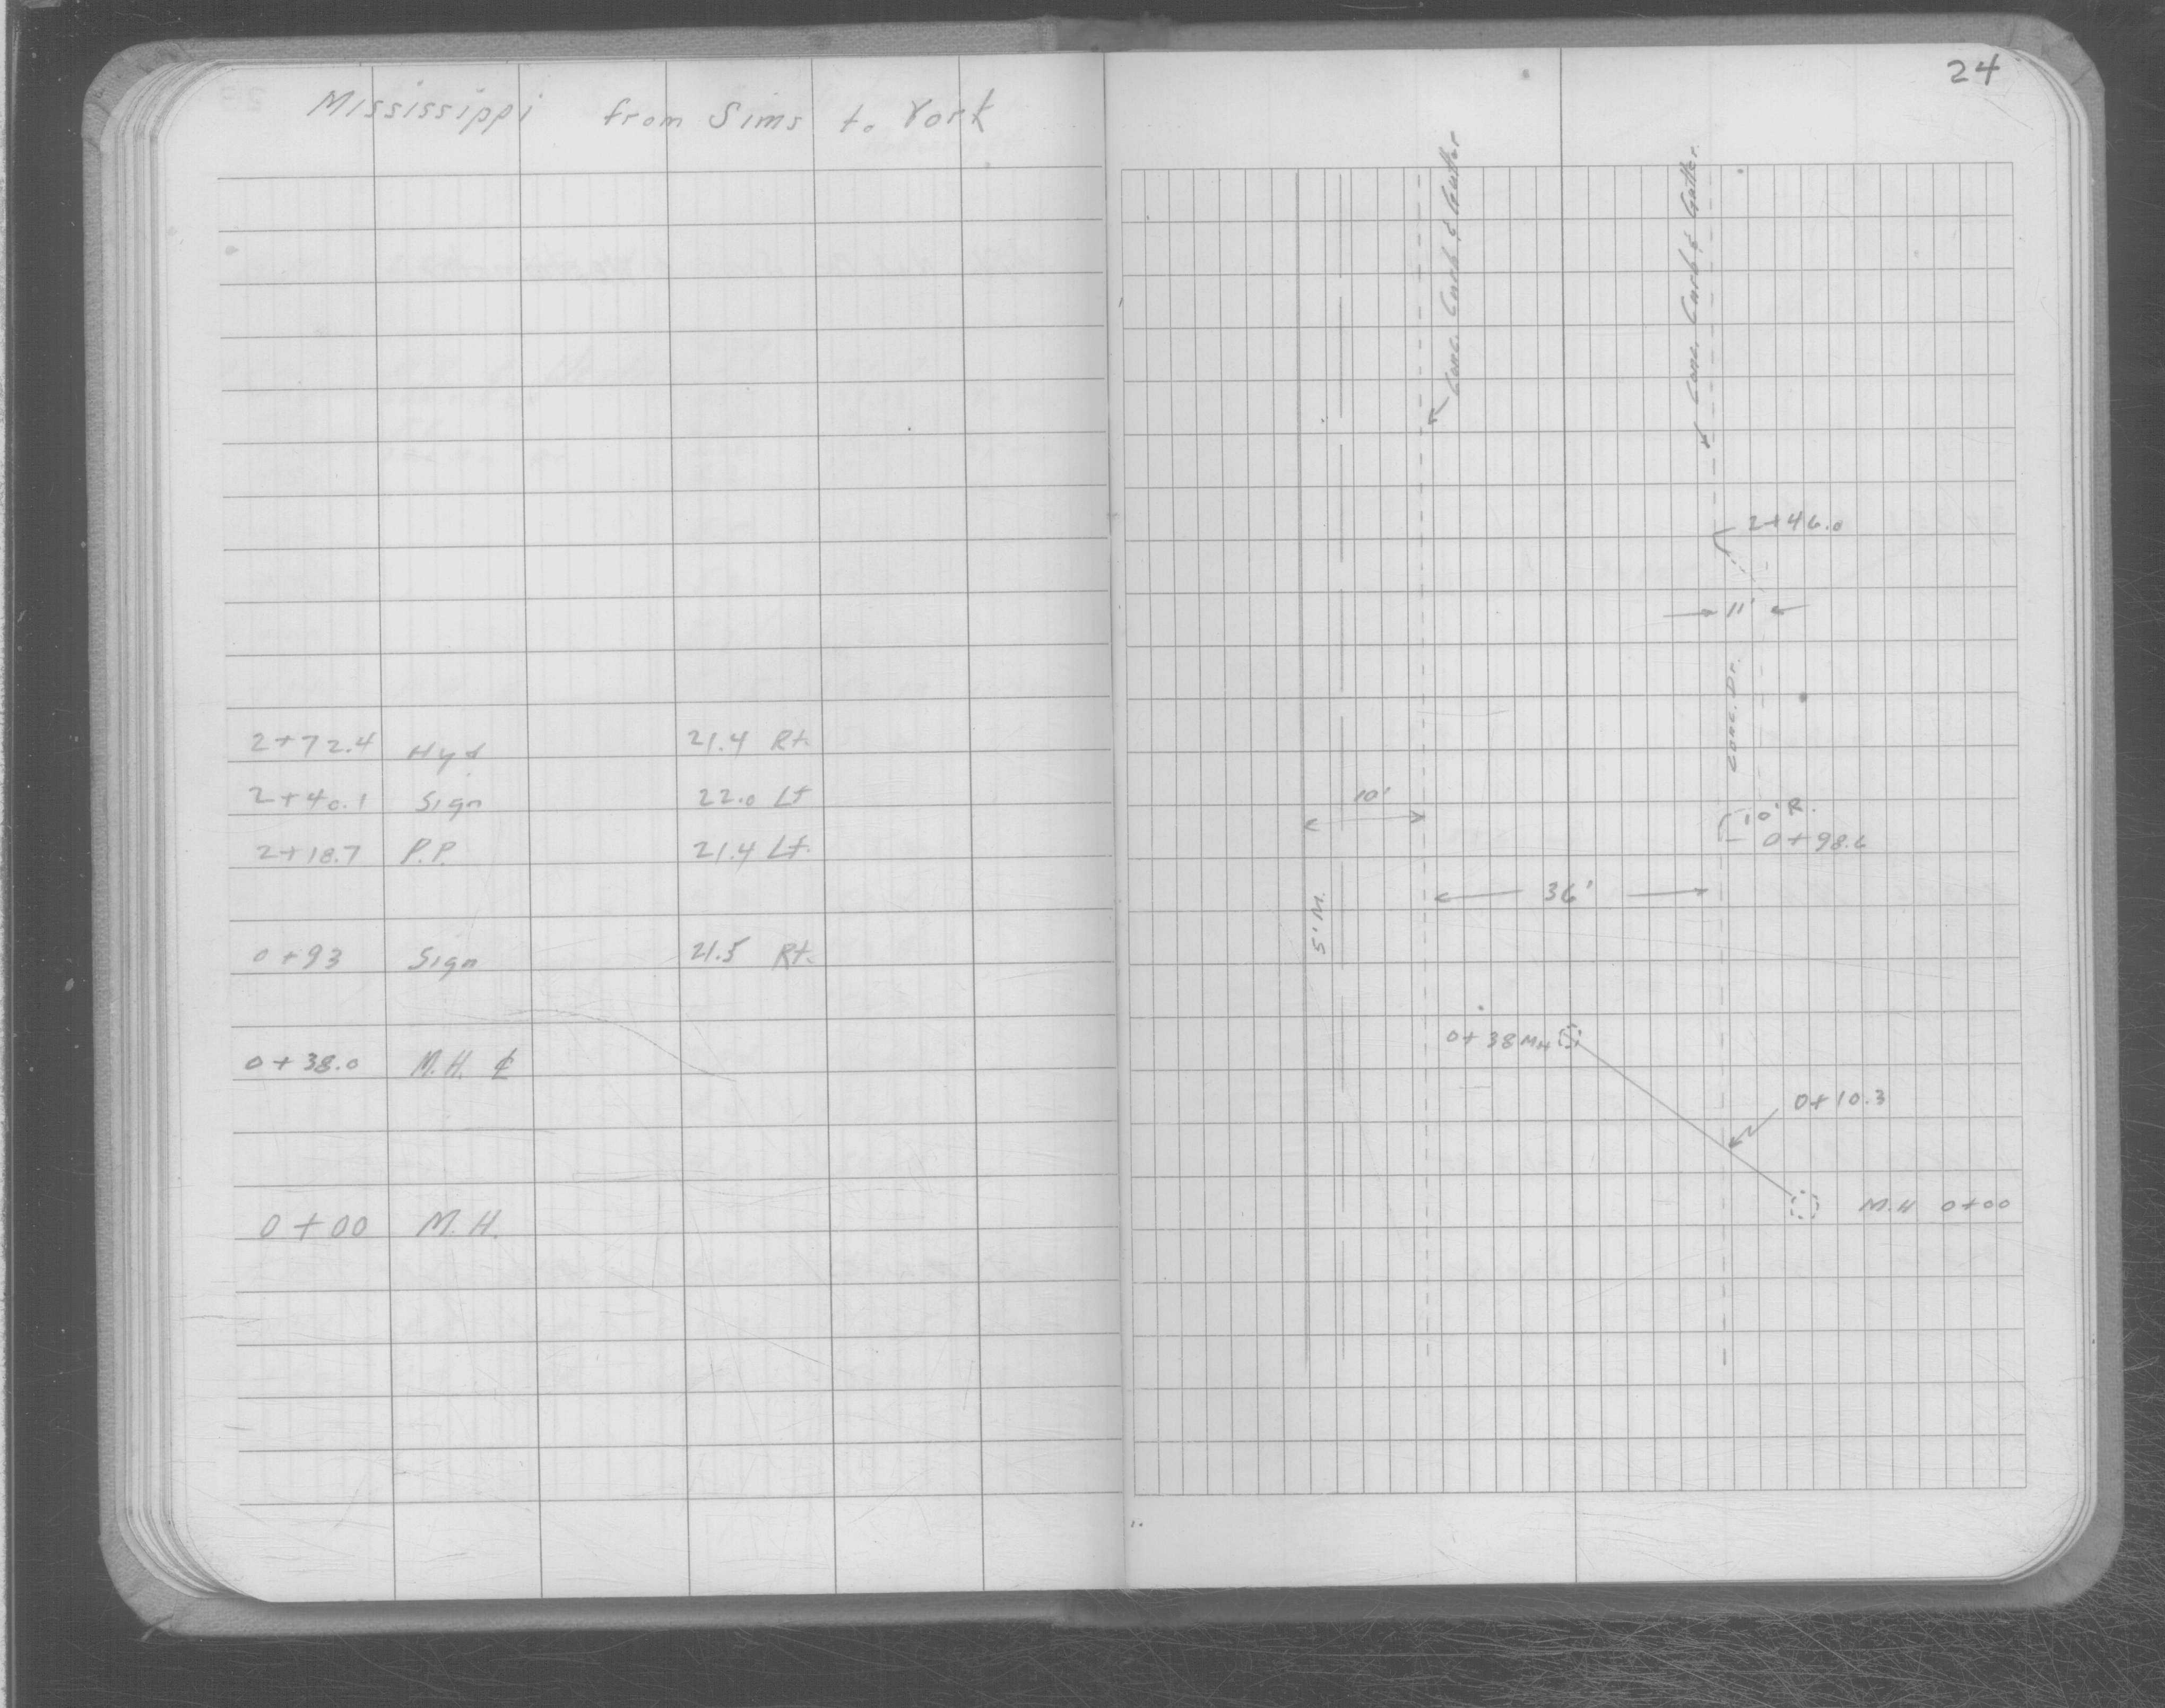 24
Mississippi from Sims to York
2+72.4 Hyd 21.4 Rt.
2+40.1 Sign 22.0 Lt
2+18.7 P.P. 21.4 Lt.
0+93 Sign 21.5 Rt.
0+38.0 M.H. ₵
0+00 M.H.
Conc. Curb & Gutter
Conc. Curb & Gutter.
2+46.0
11'
Conc. Dr.
10'
10' R.
0+98.6
36'
5' M.
0+38 MH
0+10.3
M.H 0+00